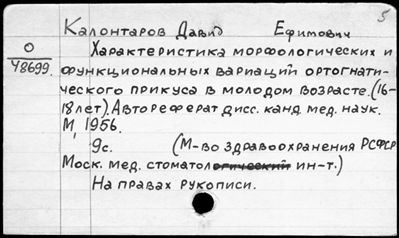 5
Калонтаров Давид Ефимович
О
48699.
Характеристика морфологических и
функциональных вариаций ортогнати-
ческого прикуса в молодом возрасте. (16-
18 лет). Автореферат дисс. канд. мед. наук.
М, 1956.
9с. (М-во здравоохранения РСФСР
Моск. мед. стоматологический ин-т.)
На правах рукописи.